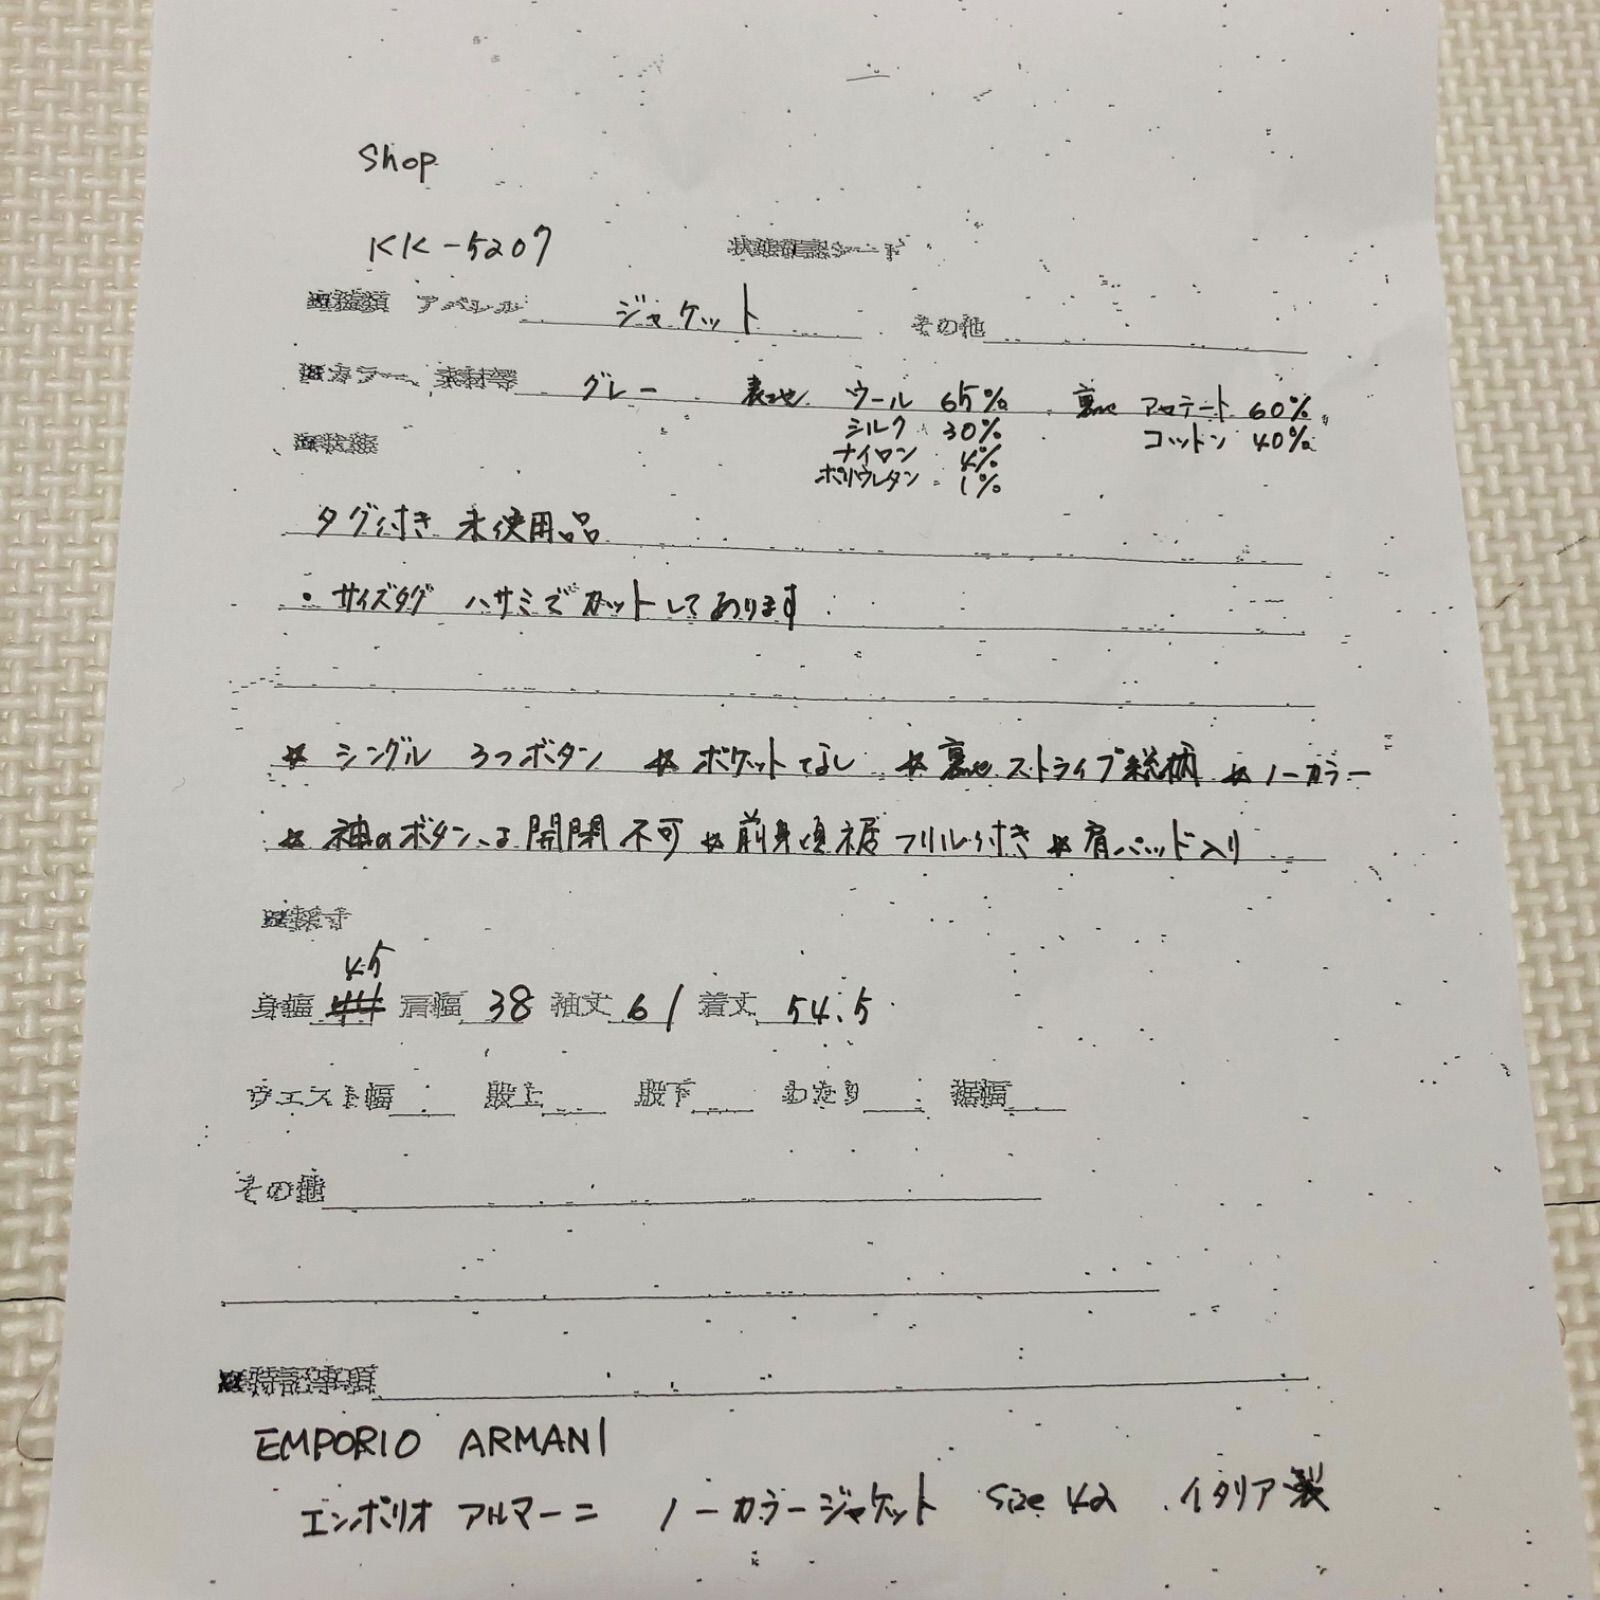 Shop
KK-5207 状態確認シート
アパレル ジャケット その他
カラー、素材等 グレー 表地 ウール 65% 裏地 アセテート 60%
シルク 30% コットン 40%
ナイロン 4%
ポリウレタン 1%
タグ付き 未使用品
・サイズタグ ハサミでカットしてあります
☆ シングル 3つボタン ☆ ポケットなし ☆ 裏地ストライプ総柄 ☆ ノーカラー
☆ 袖のボタンは開閉不可 ☆ 前身頃裾フリル付き ☆ 肩パッド入り
採寸
45
身幅 44 肩幅 38 袖丈 61 着丈 54.5
ウエスト幅 股上 股下 わたり 裾幅
その他
特記事項
EMPORIO ARMANI
エンポリオ アルマーニ ノーカラージャケット Size 42 イタリア製